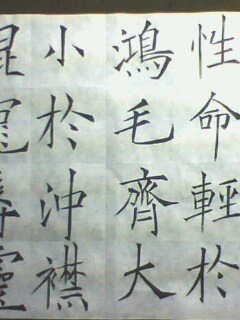 性命輕於
鴻毛齊大
小於沖襟